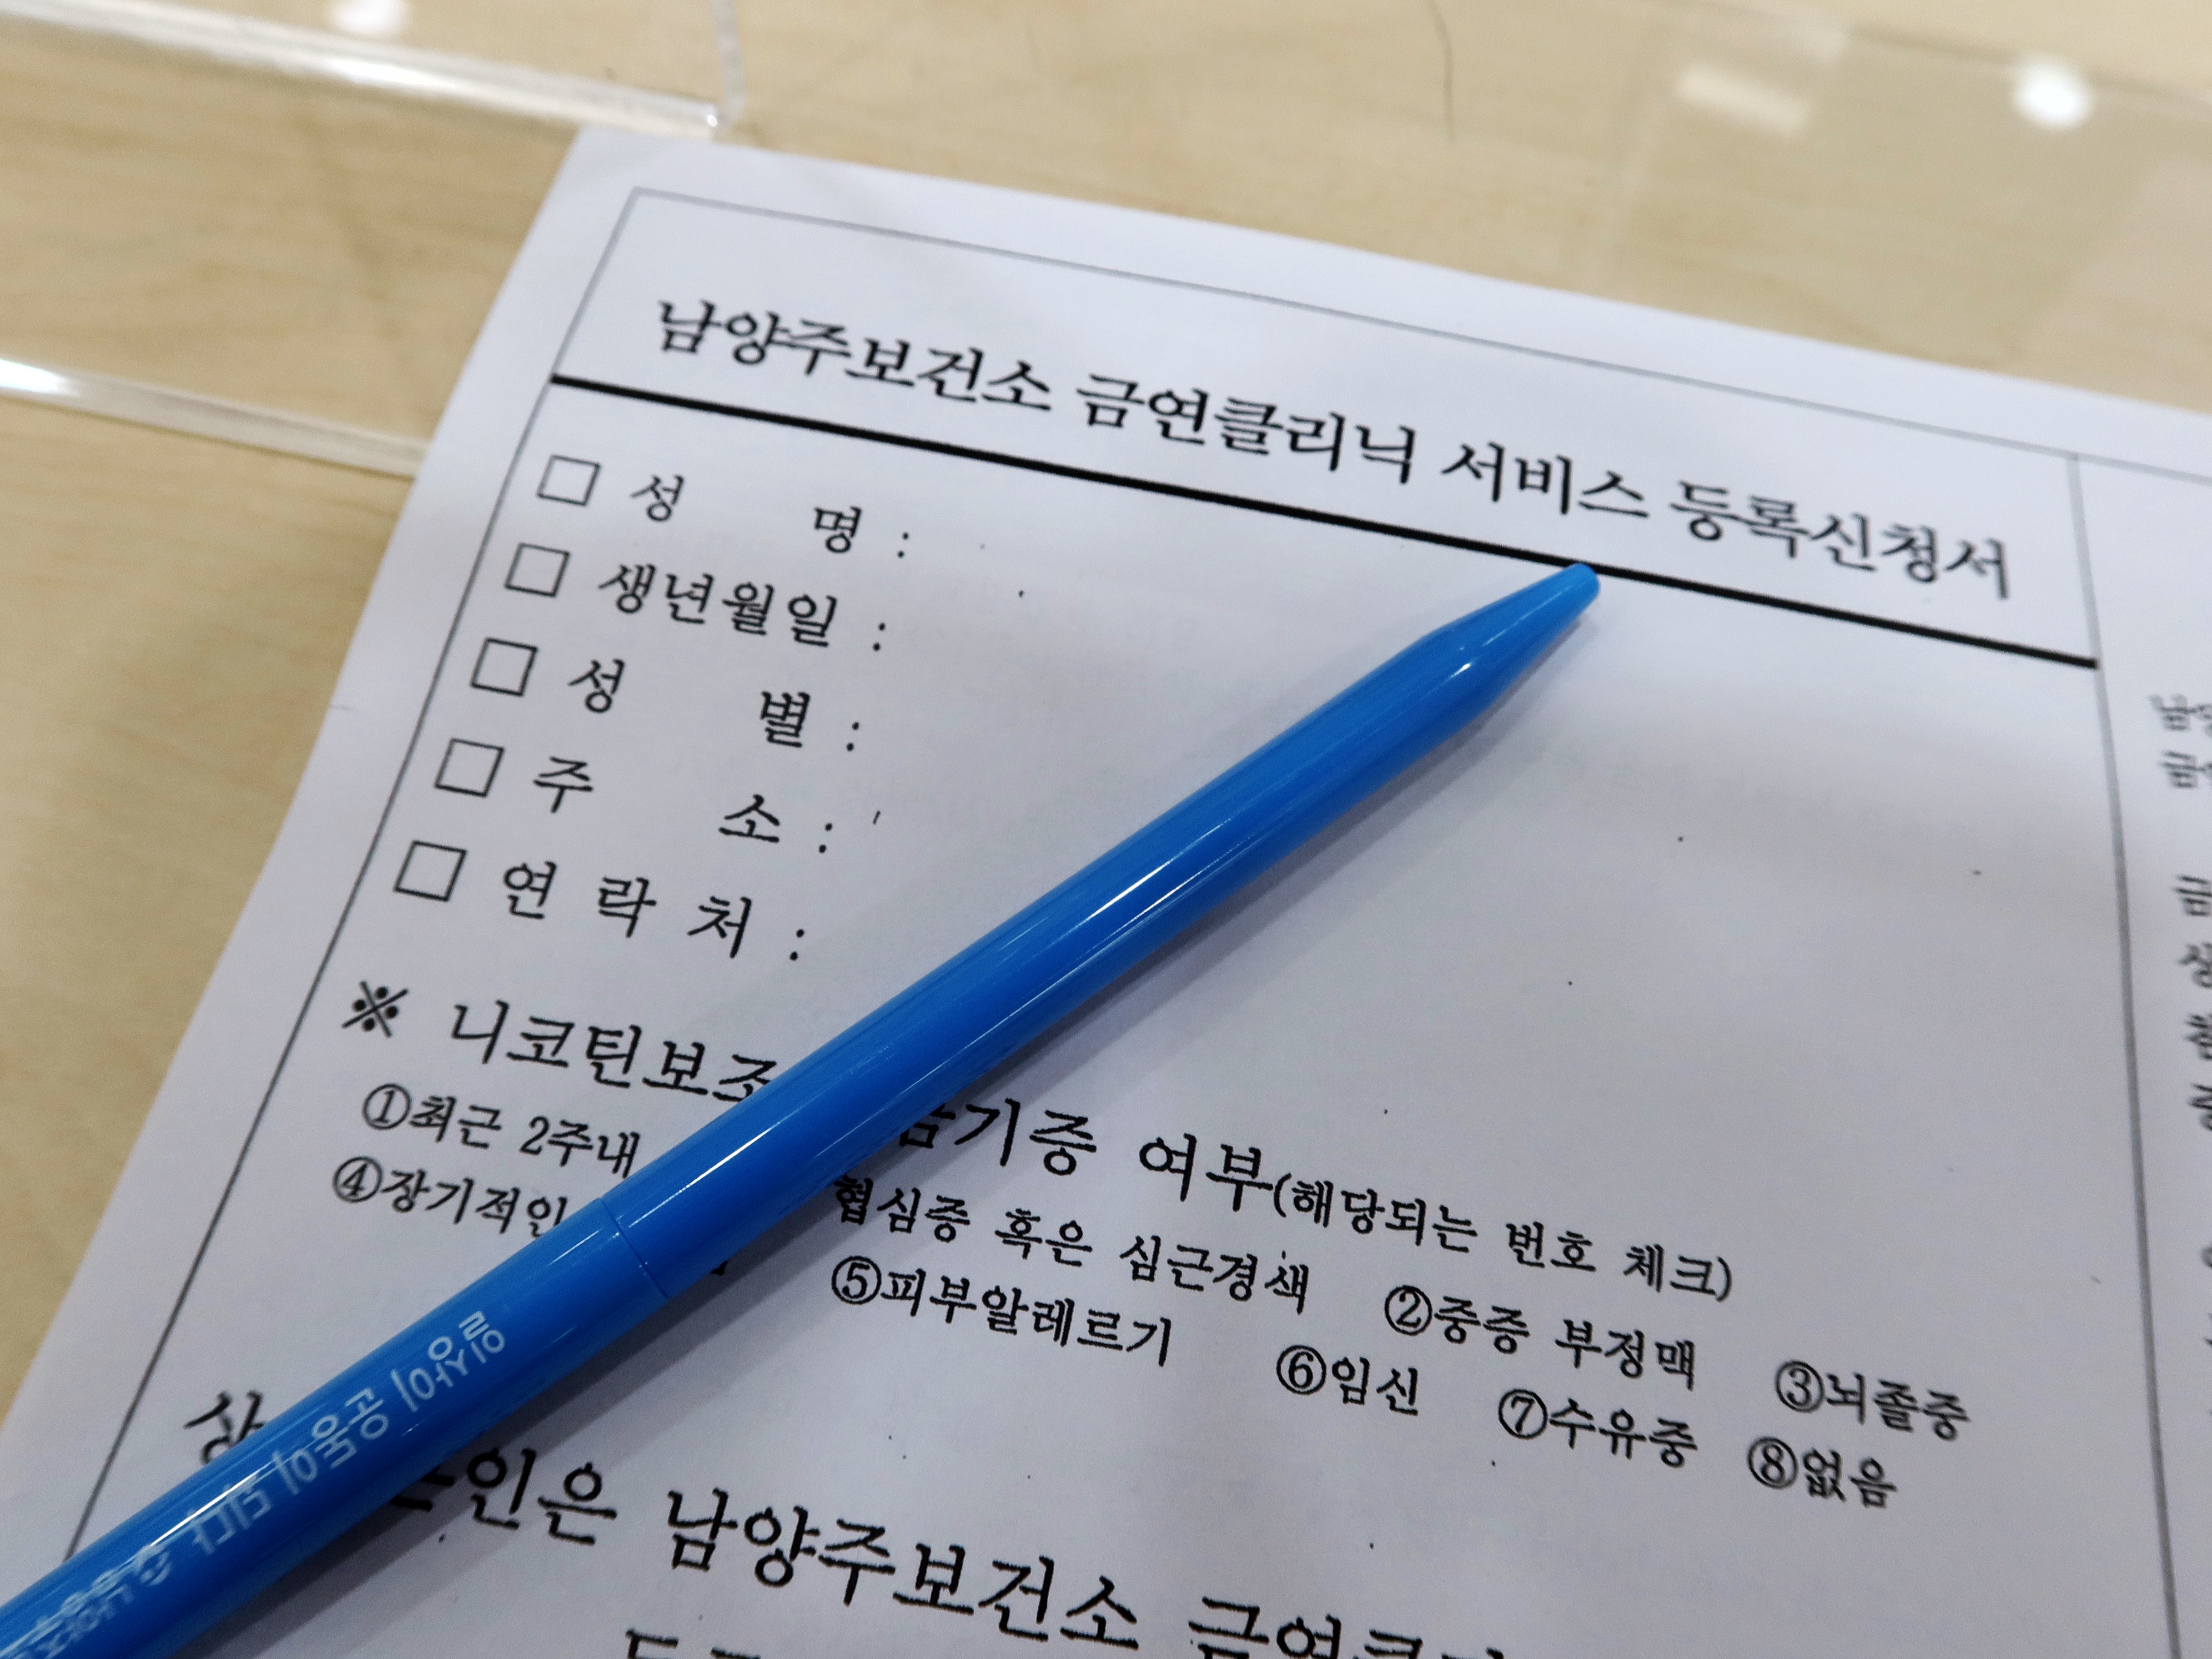 남양주보건소 금연클리닉 서비스 등록신청서
□ 성 명 :
□ 생년월일 :
□ 성 별 :
□ 주 소 :
□ 연 락 처 :
※ 니코틴보조 금기증 여부(해당되는 번호 체크)
①최근 2주내 협심증 혹은 심근경색 ②중증 부정맥 ③뇌졸중
④장기적인 ⑤피부알레르기 ⑥임신 ⑦수유중 ⑧없음
인은 남양주보건소 금연클리
일상이 공유이 되다